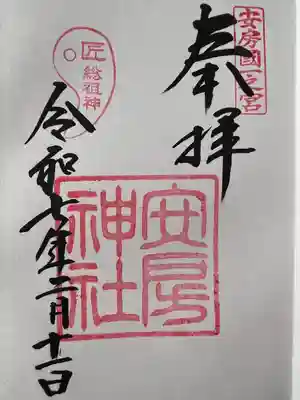 安房國一之宮
奉拝
安房神社
匠総祖神
令和七年二月十一日